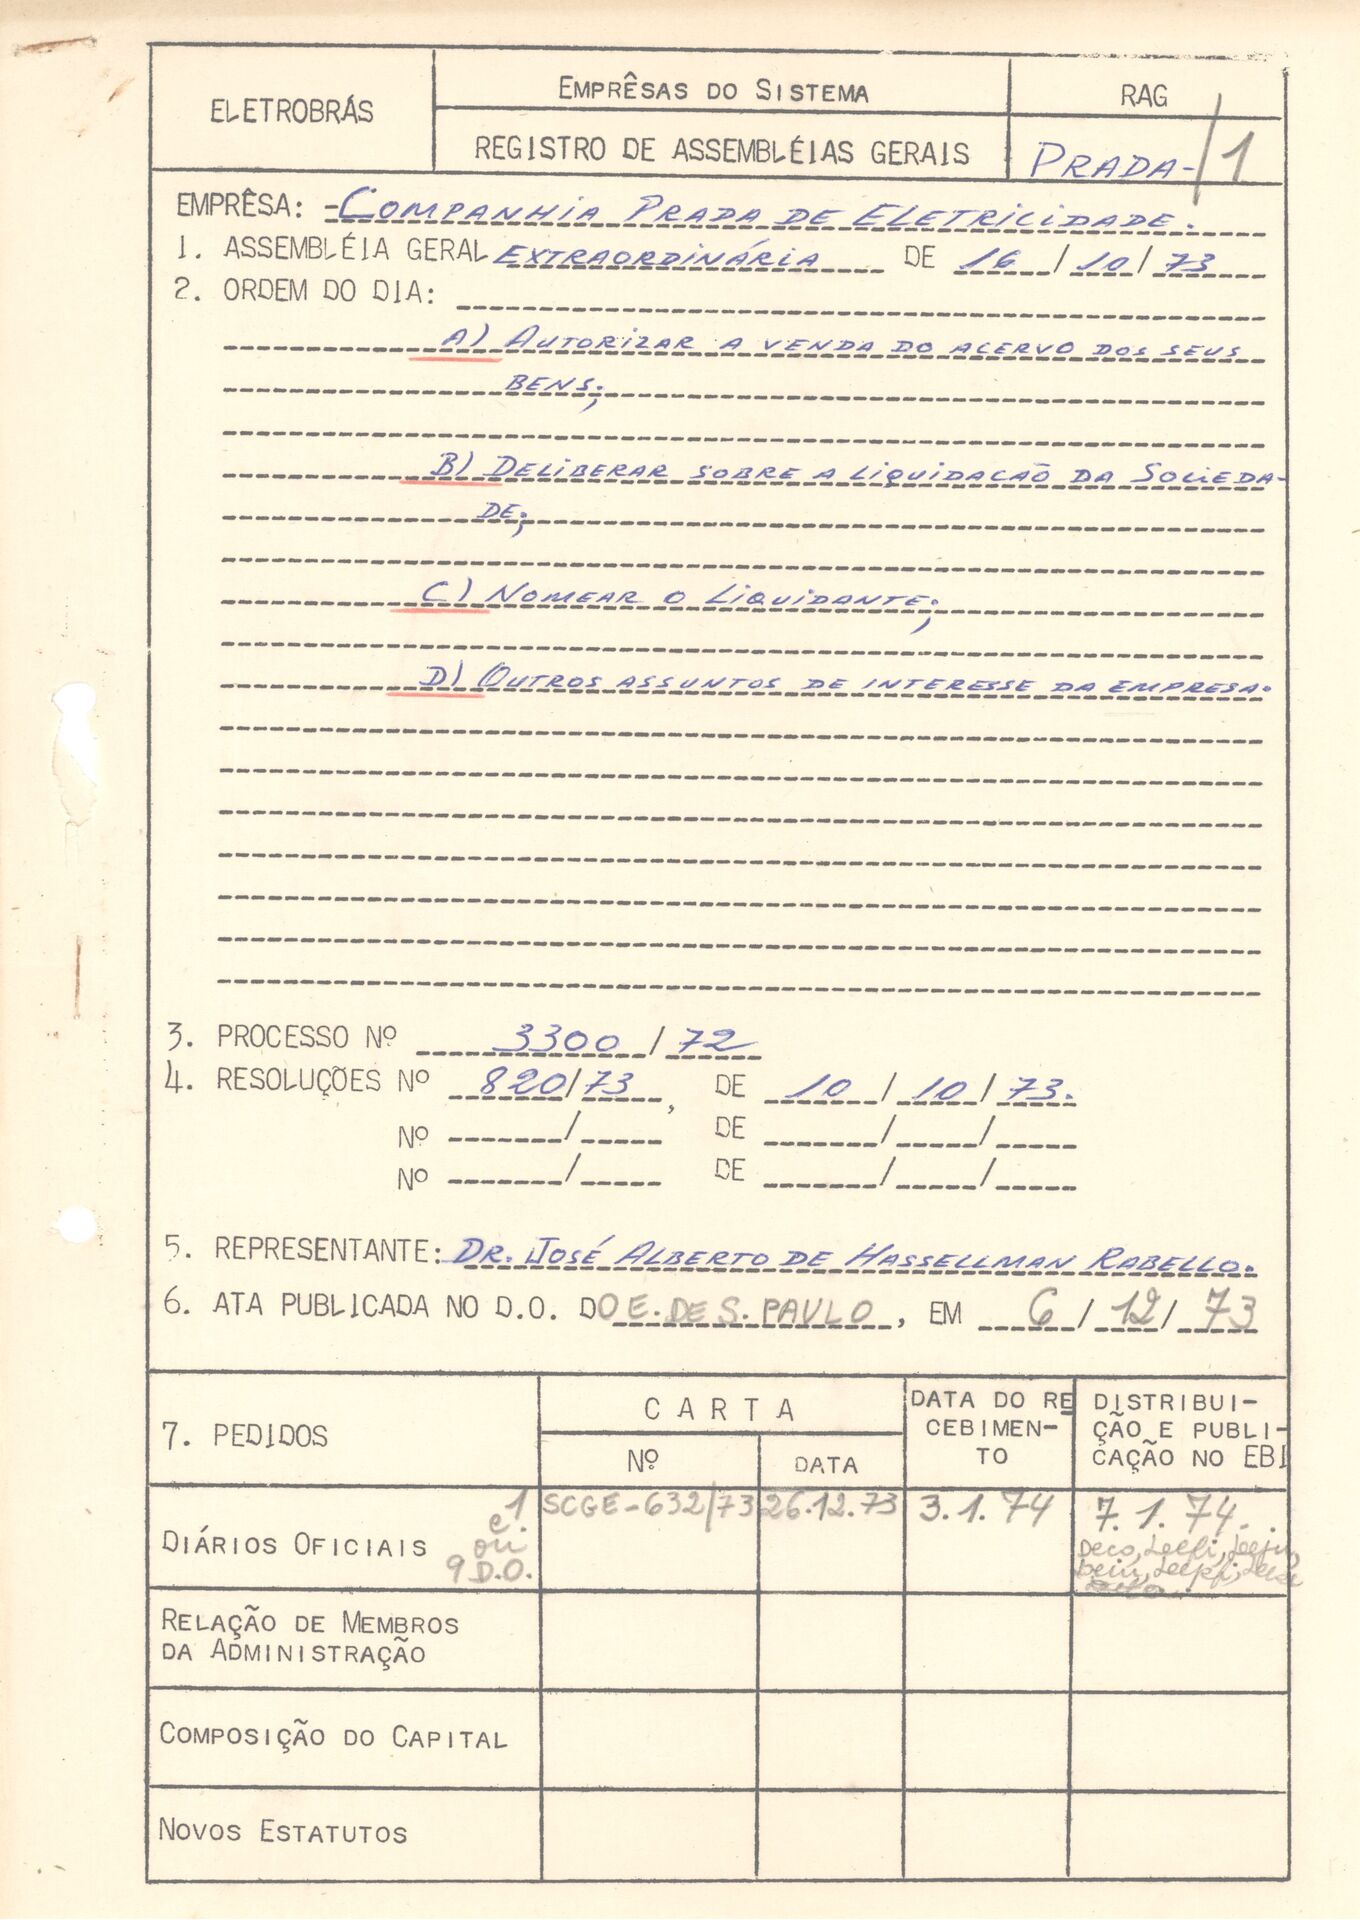 ELETROBRÁS
EMPRÊSAS DO SISTEMA
RAG
REGISTRO DE ASSEMBLÉIAS GERAIS
PRADA-/1
EMPRÊSA: -COMPANHIA PRADA DE ELETRICIDADE.
1. ASSEMBLÉIA GERAL EXTRAORDINÁRIA DE 16/10/73
2. ORDEM DO DIA:
A) AUTORIZAR A VENDA DO ACERVO DOS SEUS
BENS;
B) DELIBERAR SOBRE A LIQUIDACÃO DA SOCIEDA-
DE;
C) NOMEAR O LIQUIDANTE;
D) OUTROS ASSUNTOS DE INTERESSE DA EMPRESA.
3. PROCESSO Nº 3300/72
4. RESOLUÇÕES Nº 820/73, DE 10/10/73.
Nº / DE / /
Nº / DE / /
5. REPRESENTANTE: DR. JOSÉ ALBERTO DE HASSELLMAN RABELLO.
6. ATA PUBLICADA NO D.O. DO E. DE S. PAULO, EM 6/12/73
7. PEDIDOS
CARTA
Nº
DATA
DATA DO RE
CEBIMEN-
TO
DISTRIBUI-
ÇÃO E PUBLI-
CAÇÃO NO EBI
DIÁRIOS OFICIAIS
1
e.
ou
9 D.O.
SCGE-632/73
26.12.73
3.1.74
7.1.74.
Deco,
RELAÇÃO DE MEMBROS
DA ADMINISTRAÇÃO
COMPOSIÇÃO DO CAPITAL
NOVOS ESTATUTOS